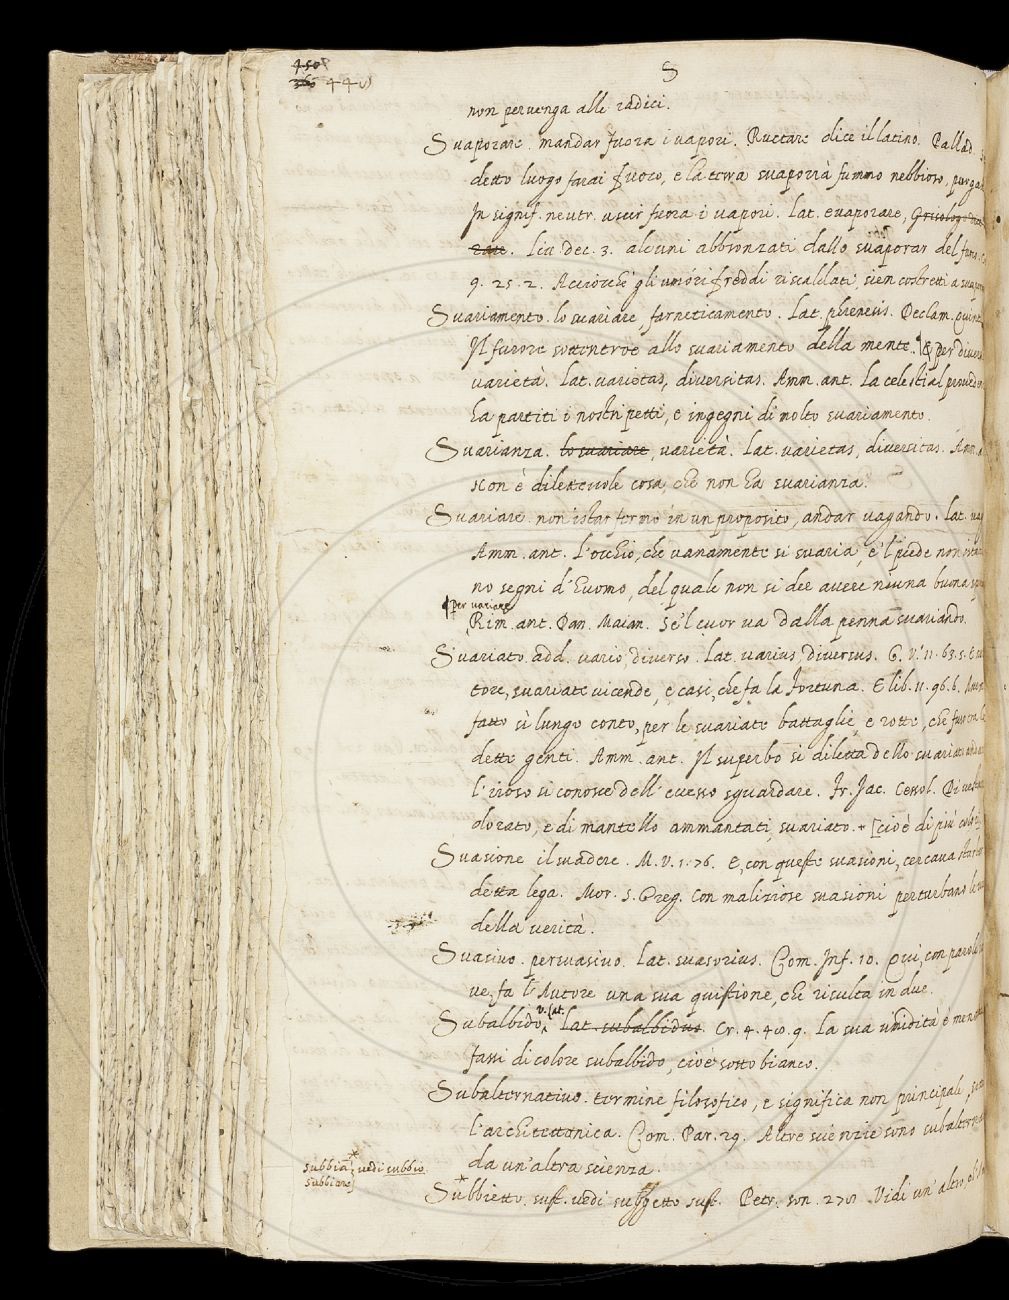 S
non pervenga alle radici.
Suaporare. mandar fuora i vapori. Ructare dice il latino. Pallad.
detto luogo farai fuoco, e la terra suaporrà fummo nebbioso,
In signif. neutr. uscir fuora i vapori. Lat. evaporare,
Liu. Dec. 3. alcuni abbronzati dallo suaporar del
9. 25. 2. Acciocchè gli umóri freddi riscaldati, sien costretti a
Suariamento. lo suariare, farneticamento. Lat. phrenesis. Declam. Quint.
Il furore sottentroe allo suariamento della mente. & per
varietà. Lat. varietas, diversitas. Amm. ant. La celestial
ha partiti i nostri petti, e ingegni di molto suariamento.
Suarianza. lo suariare, varietà. Lat. varietas, diversitas. Amm.
Non è dilettevole cosa, che non ha suarianza.
Suariare. non istar fermo in un proposito, andar vagando. Lat.
Amm. ant. L'occhio, che vanamente si suaria, e 'l piede non
no segni d'huomo, del quale non si dee avere niuna buona
per variare
Rim. ant. Dan. Maian. Se 'l cuor va dalla penna suariando.
Suariato. add. vario, diverso. Lat. varius, diversus. G. V. 11. 63. 5.
tore, suariate vicende, e casi, che fa la Fortuna. E lib. 11. 96. 6.
fatto sì lungo conto, per le suariate battaglie, e rotte, che
dette genti. Amm. ant. Il superbo si diletta dello suariato
l'irioso si conosce dell' suo sguardare. Fr. Jac. Cessol. Di
dorato, e di mantello ammantati, suariato. + [cioè di più
Suasione. il suadere. M. V. 1. 76. E, con queste suasioni, cercava
detta lega. Mor. S. Greg. Con maliziose suasioni perturbano
della verità.
Suasivo. persuasivo. Lat. suasorius. Com. Inf. 10. Qui, con
ve, fa l'Autore una sua quistione, che risulta in due.
v. lat.
Subalbido. Lat. subalbidus. Cr. 4. 40. 9. La sua umidità è
fassi di colore subalbido, cioè sotto bianco.
Subalternativo. termine filosofico, e significa non principale,
l'architettonica. Com. Par. 29. Altre scienzie sono
da un'altra scienza.
subbia } vedi subbio
subbiare
Subbietto. sust. vedi suggetto sust. Petr. son. Vidi un' altro,